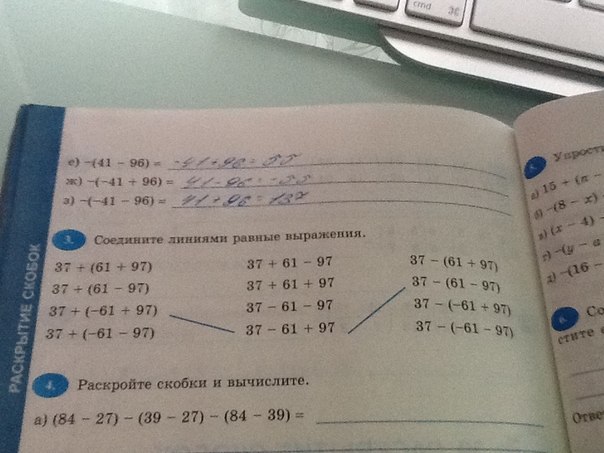 cmd ⌘
е) -(41 - 96) = -41+96=55
ж) -(-41 + 96) = 41-96=-55
з) -(-41 - 96) = 41+96=137
3. Соедините линиями равные выражения.
37 + (61 + 97) 37 + 61 - 97 37 - (61 + 97)
37 + (61 - 97) 37 + 61 + 97 37 - (61 - 97)
37 + (-61 + 97) 37 - 61 - 97 37 - (-61 + 97)
37 + (-61 - 97) 37 - 61 + 97 37 - (-61 - 97)
4. Раскройте скобки и вычислите.
а) (84 - 27) - (39 - 27) - (84 - 39) =
РАСКРЫТИЕ СКОБОК
Упрости
а) 15 + (п -
б) -(8 - x)
в) (x - 4) -
г) -(y - а
д) -(16 -
6. Со
стите с
Ответ